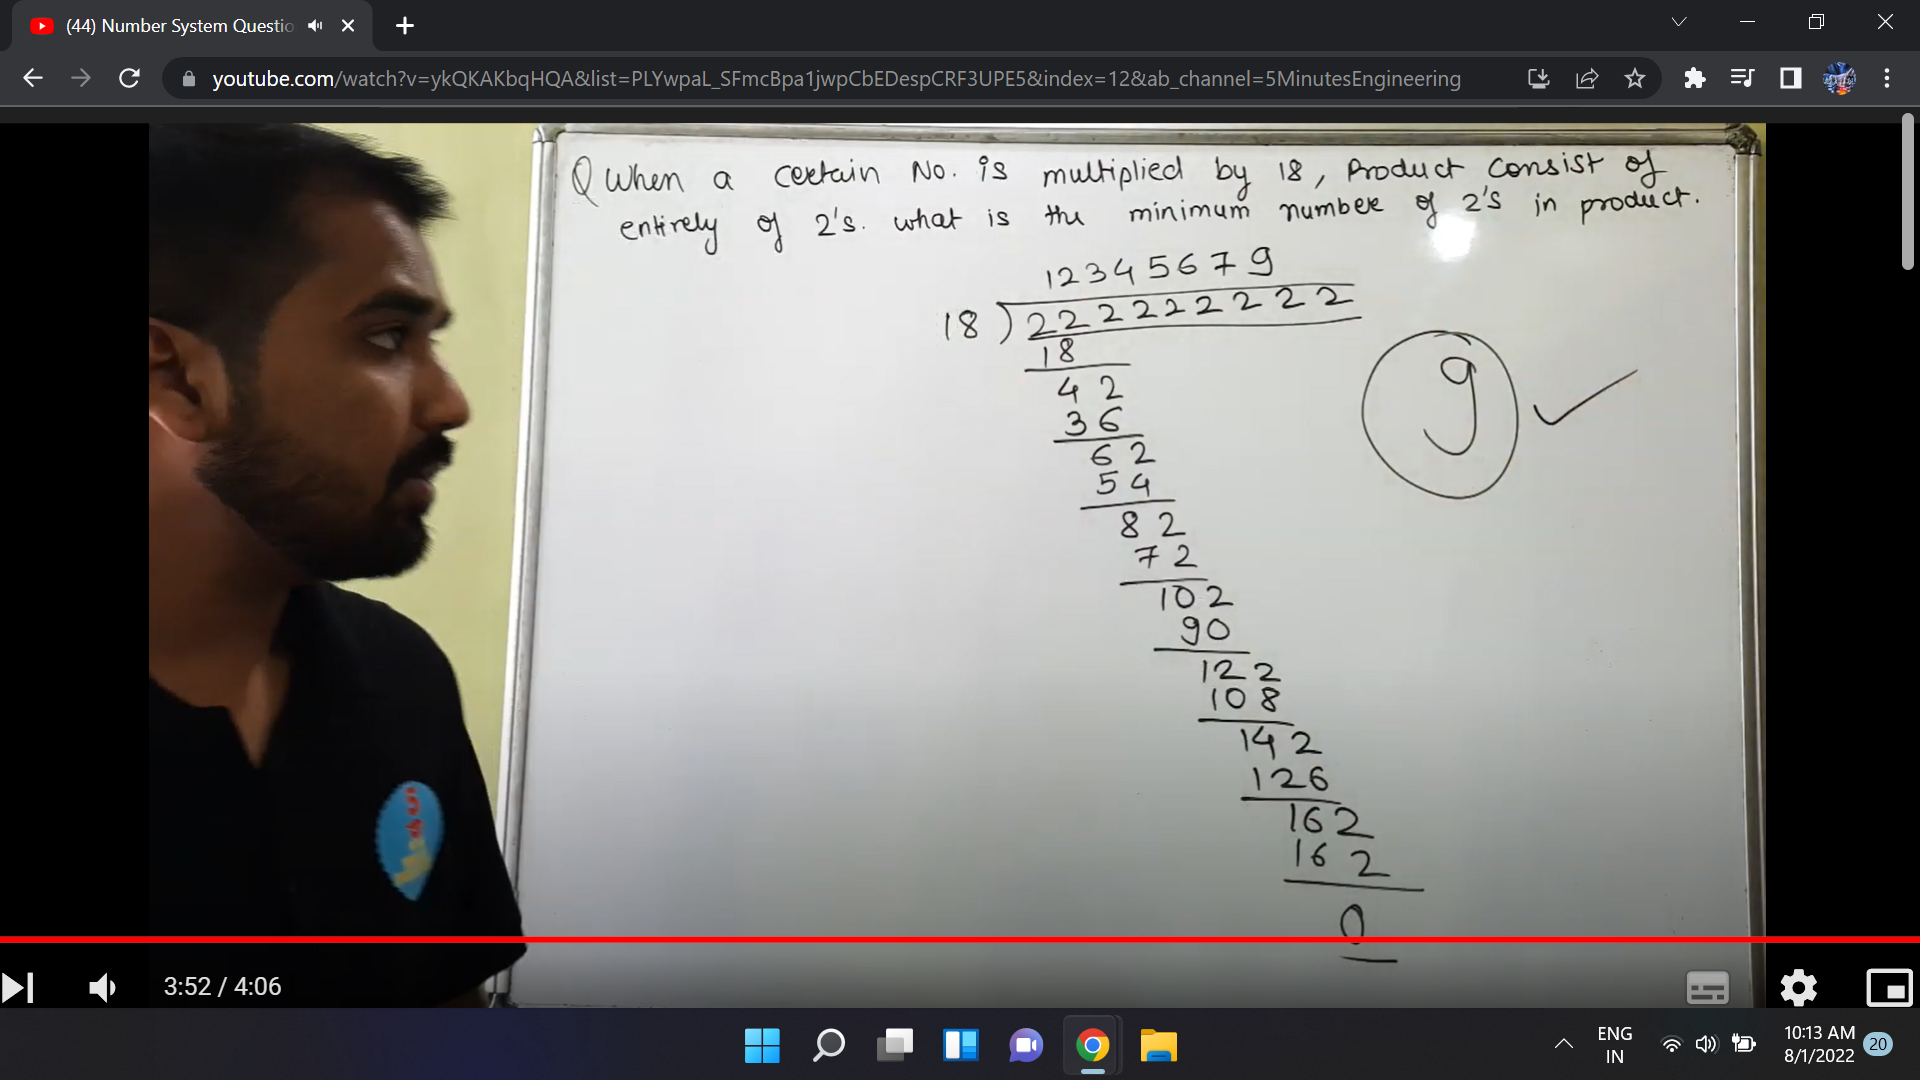 (44) Number System Questio
youtube.com/watch?v=ykQKAKbqHQA&list=PLYwpaL_SFmcBpa1jwpCbEDespCRF3UPE5&index=12&ab_channel=5MinutesEngineering
Q When a certain No. is multiplied by 18, Product consist of
entirely of 2's. what is the minimum number of 2's in product.
12345679
18) 222222222
18
42
36
62
54
82
72
102
90
122
108
142
126
162
162
0
9
3:52 / 4:06
ENG
IN
10:13 AM
8/1/2022
20